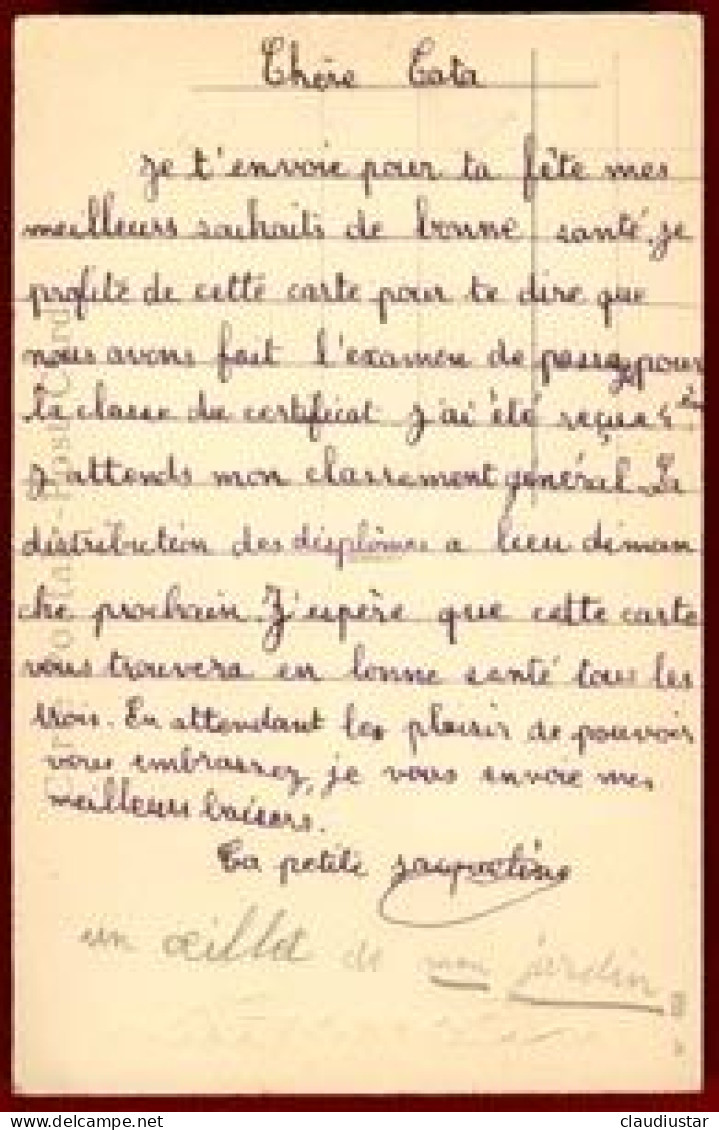 Chère Tata
Je t'envoie pour ta fête mes
meilleurs souhaits de bonne santé, je
profite de cette carte pour te dire que
nous avons fait l'examen de passage pour
la classe du certificat j'ai été reçue
J'attends mon classement général. La
distribution des displômes a lieu diman
che prochain. J'espère que cette carte
vous trouvera en bonne santé tous les
trois. En attendant le plaisir de pouvoir
vous embrasser, je vous envoie mes
meilleurs baisers.
Ta petite Jacqueline
un œillet de mon jardin
Carte Postale - Post Card
claudiustar